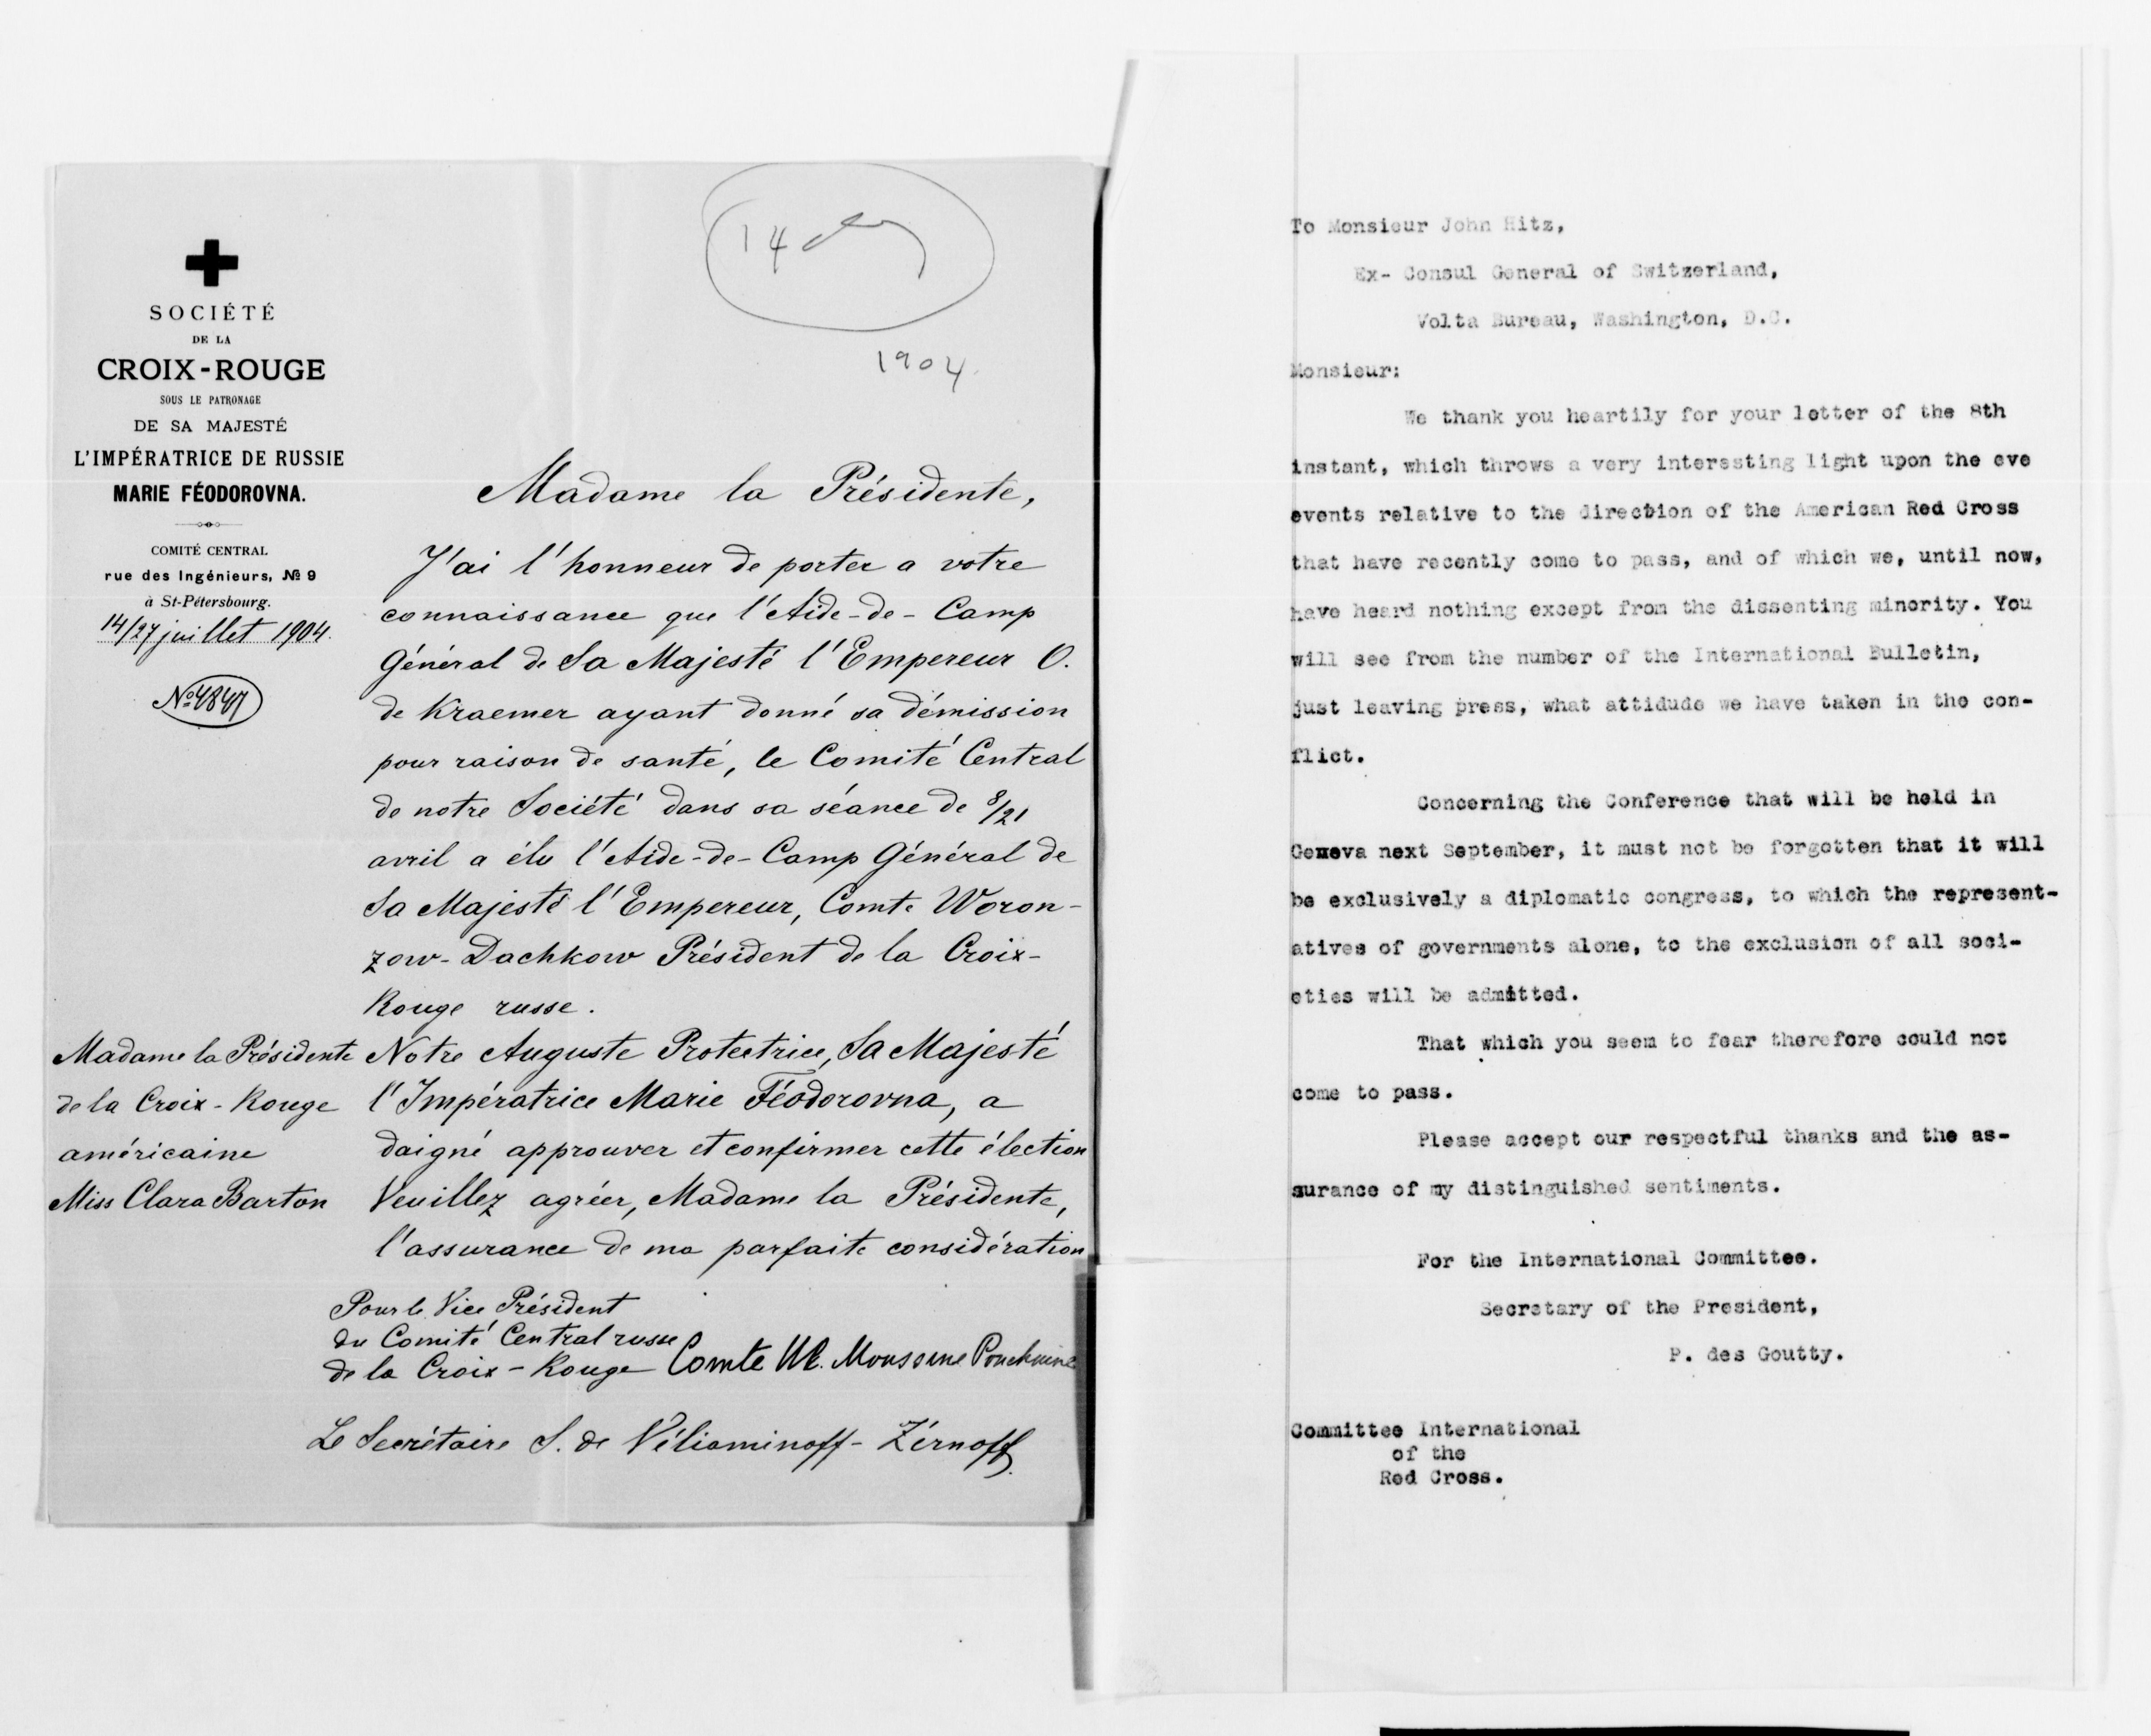 14
1904
SOCIÉTÉ
DE LA
CROIX-ROUGE
SOUS LE PATRONAGE
DE SA MAJESTÉ
L'IMPÉRATRICE DE RUSSIE
MARIE FÉODOROVNA.
COMITÉ CENTRAL
rue des Ingénieurs, № 9
à St-Pétersbourg.
14/27 juillet 1904.
№ 4847
Madame la Présidente,
J'ai l'honneur de porter a votre
connaissance que l'Aide-de-Camp
Général de Sa Majesté l'Empereur O.
de Kraemer ayant donné sa démission
pour raison de santé, le Comité Central
de notre Société dans sa séance de 8/21
avril a élu l'Aide-de-Camp Général de
Sa Majesté l'Empereur, Comte Woron-
zow-Dachkow Président de la Croix-
Rouge russe.
Notre Auguste Protectrice, Sa Majesté
l'Impératrice Marie Féodorovna, a
daigné approuver et confirmer cette élection
Veuillez agréer, Madame la Présidente,
l'assurance de ma parfaite considération
Madame la Présidente
de la Croix-Rouge
américaine
Miss Clara Barton
Pour le Vice Président
du Comité Central russe
de la Croix-Rouge Comte M. Moussine Pouchkine
Le Secrétaire S. de Véliaminoff-Zérnoff.
To Monsieur John Hitz,
Ex- Consul General of Switzerland,
Volta Bureau, Washington, D.C.
Monsieur:
We thank you heartily for your letter of the 8th
instant, which throws a very interesting light upon the eve
events relative to the direction of the American Red Cross
that have recently come to pass, and of which we, until now,
have heard nothing except from the dissenting minority. You
will see from the number of the International Bulletin,
just leaving press, what attidude we have taken in the con-
flict.
Concerning the Conference that will be held in
Geneva next September, it must not be forgotten that it will
be exclusively a diplomatic congress, to which the represent-
atives of governments alone, to the exclusion of all soci-
eties will be admitted.
That which you seem to fear therefore could not
come to pass.
Please accept our respectful thanks and the as-
surance of my distinguished sentiments.
For the International Committee.
Secretary of the President,
P. des Goutty.
Committee International
of the
Red Cross.